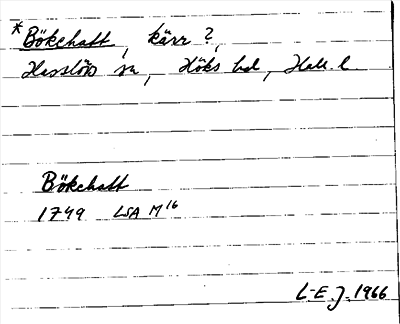 *Bökehatt, kärr?,
Hasslövs sn, Höks hd, Hall. l.
Bökehatt
1749 LSA M16
L-E. J. 1966